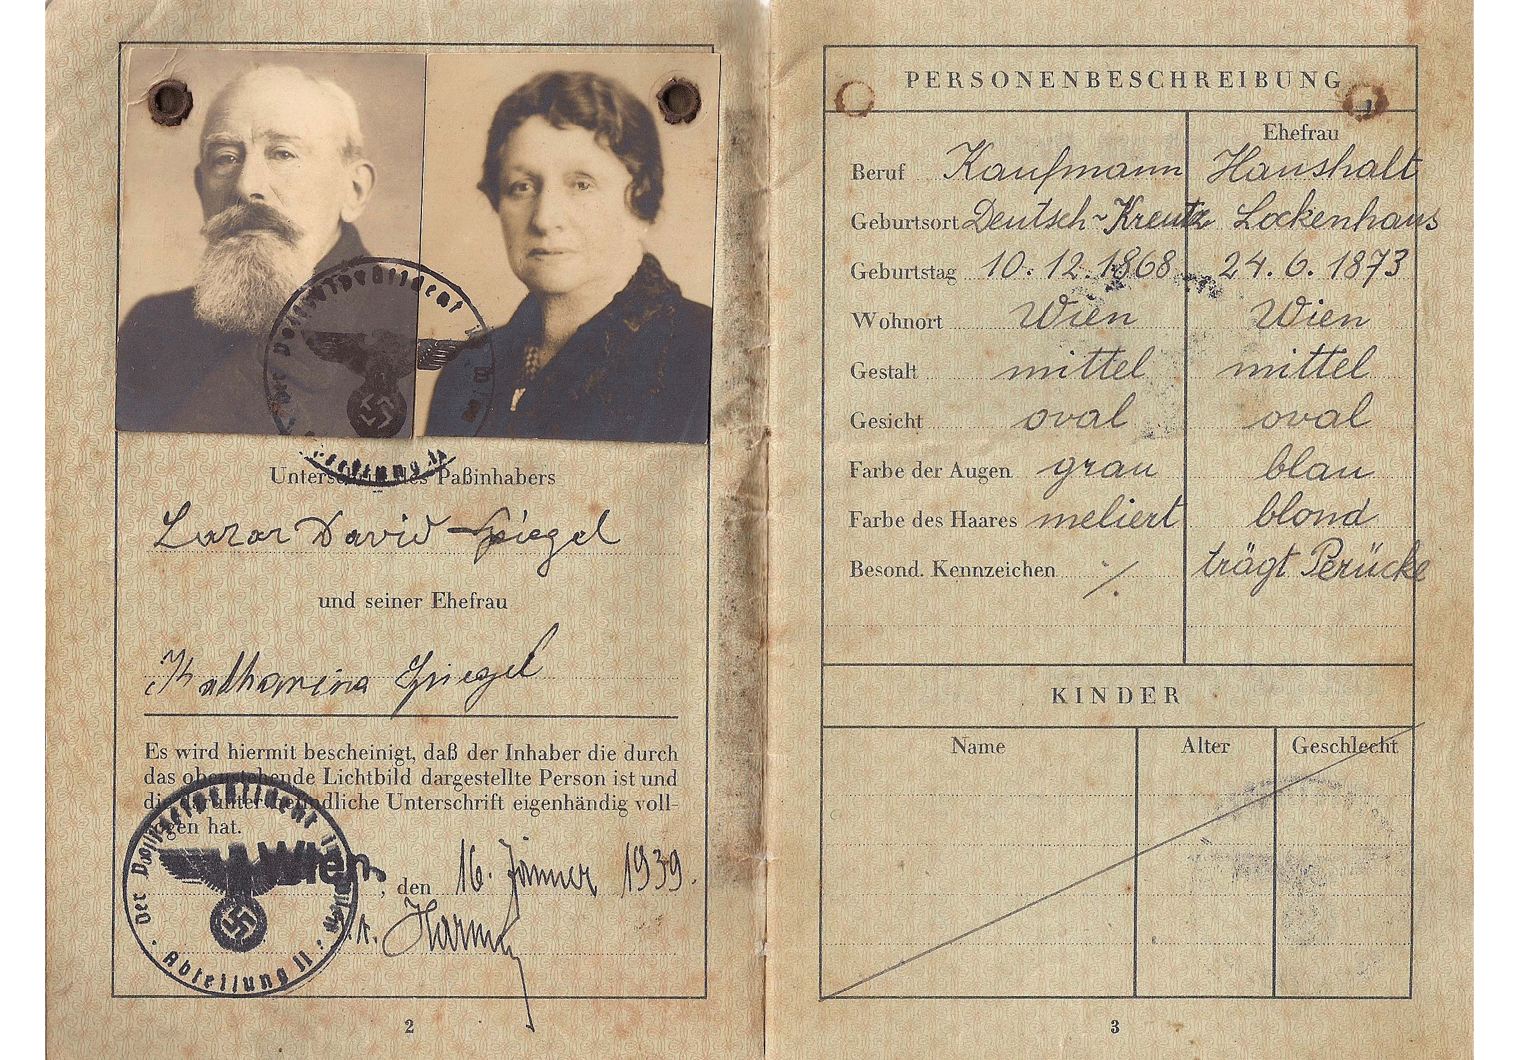 Der Polizeipräsident
Abteilung II
Unterschrift des Paßinhabers
Lazar David Spiegel
und seiner Ehefrau
Katharina Spiegel
Es wird hiermit bescheinigt, daß der Inhaber die durch
das obenstehende Lichtbild dargestellte Person ist und
die darunter befindliche Unterschrift eigenhändig voll-
zogen hat.
Wien, den 16. Jänner 1939.
Der Polizeipräsident in Wien
Abteilung II
2
PERSONENBESCHREIBUNG
Ehefrau
Beruf Kaufmann Haushalt
Geburtsort Deutsch-Kreutz Lockenhaus
Geburtstag 10.12.1868 24.6.1873
Wohnort Wien Wien
Gestalt mittel mittel
Gesicht oval oval
Farbe der Augen grau blau
Farbe des Haares meliert blond
Besond. Kennzeichen ⁒ trägt Perücke
KINDER
Name Alter Geschlecht
3